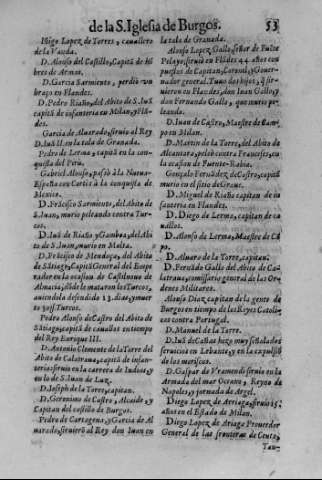 de la S. Iglesia de Burgos. 53
Iñigo Lopez de Torres, cauallero
de la Vanda.
D. Alonso del Castillo, Capitã de hõ
bres de Armas.
D. Garcia Sarmiento, perdió vn
braço en Flandes.
D. Pedro Riaño, del Abito de S. Iuã
capitã de infanteria en Milan, y Flã-
des.
Garcia de Aluarado, siruio al Rey
D. Iuã II. en la tola de Granada.
Pedro de Lerma, capitã en la con-
quista del Perù.
Gabriel Alonso, passò à la Nueua-
España con Cortès à la conquista de
Mexico.
D. Frãcisco Sarmiento, del Abito de
S. Iuan, murio peleando contra Tur-
cos.
D. Iuã de Riaño y Gamboa, del Abi-
to de S. Iuan, murio en Malta.
D. Frãcisco de Mendoça, del Abito
de Sãtiago, Capitã General del Empe
rador en la ocasion de Castilnouo de
Almacia, dõde le mataron los Turcos,
auiendola defendido 23. dias, y muer
to Turcos.
Pedro Alonso de Castro del Abito de
Sãtiago, capitã de cauallos en tiempo
del Rey Enrique III.
D. Antonio Clemente de la Torre del
Abito de Calatraua, capitã de infan-
teria siruio en la carrera de Indias, y
en lo de S. Iuan de Luz.
D. Ioseph de la Torre, capitan.
D. Geronimo de Castro, Alcaide, y
Capitan del castillo de Burgos.
Pedro de Cartagena, y Garcia de Al
uarado, siruierõ al Rey don Iuan en
la tala de Granada.
Alonso Lopez Gallo, señor de Fuẽte
Pelayo, siruiò en Flãdes 44 años con
puestos de Capitan, Coronel, y Gouer-
nador general. Tuuo dos hijos, q̃ sir-
uieron en Flandes, don Iuan Gallo, y
don Fernando Gallo, que murio pe-
leando.
D. Iuan de Castro, Maestre de Cam-
po en Milan.
D. Martin de la Torre, del Abito de
Alcantara, peleò contra Franceses, en
la ocasion de Fuente-Rabia.
Gonçalo Fernãdez de Castro, capitã
murio en el sitio de Graue.
D. Miguel de Riaño capitan de in
fanteria en Flandes.
D. Diego de Lerma, capitan de ca
uallos.
D. Alonso de Lerma, Maestre de Cã
po.
D. Aluaro de la Torre, capitan.
D. Fernãdo Gallo del Abito de Ca-
latraua, comissario general de las Or-
denes Militares.
Alonso Diaz capitan de la gente de
Burgos en tiempo de los Reyes Catoli-
cos contra Portugal.
D. Manuel de la Torre.
D. Iuã de Cañas hizo muy señalados
seruicios en Lebante, y en la expulsiõ
de los moriscos.
D. Gaspar de Vramendi siruio en la
Armada del mar Oceano, Reyno de
Napoles, y jornada de Argel.
Diego Lopez de Arriaga, siruio 15.
años en el Estado de Milan.
Diego Lopez de Arriaga Proueedor
General de las fronteras de Ceuta,
Tan-